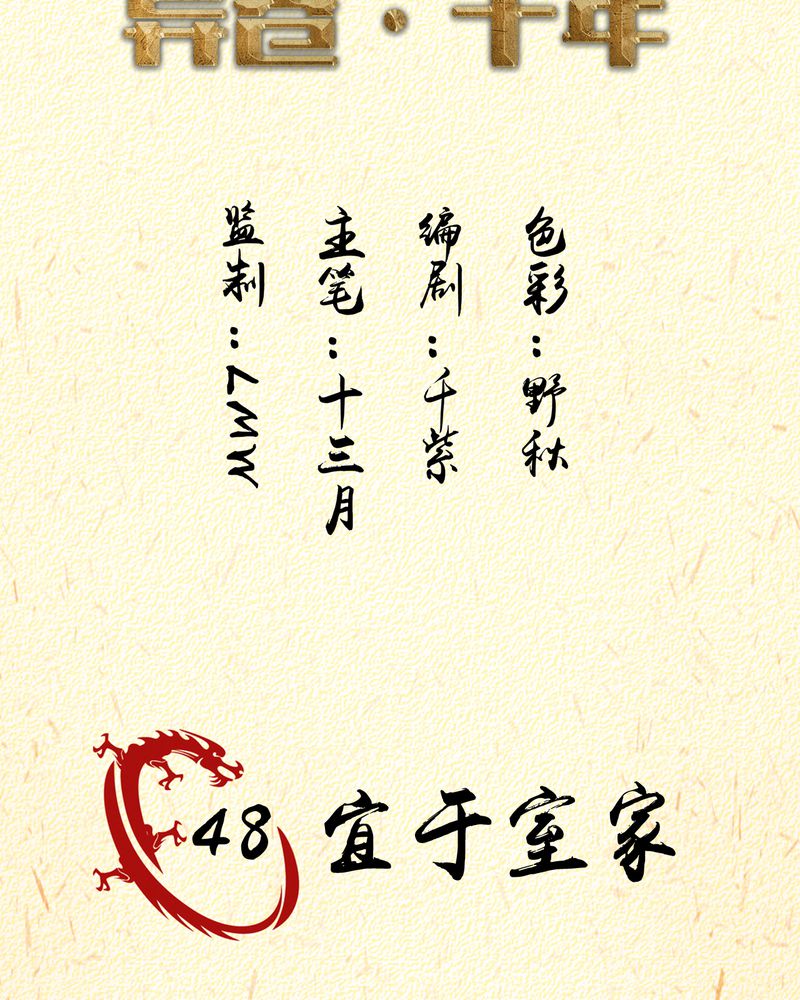 监制：MW7
主笔：十三月
编剧：千紫
色彩：野秋
48 宜于室家